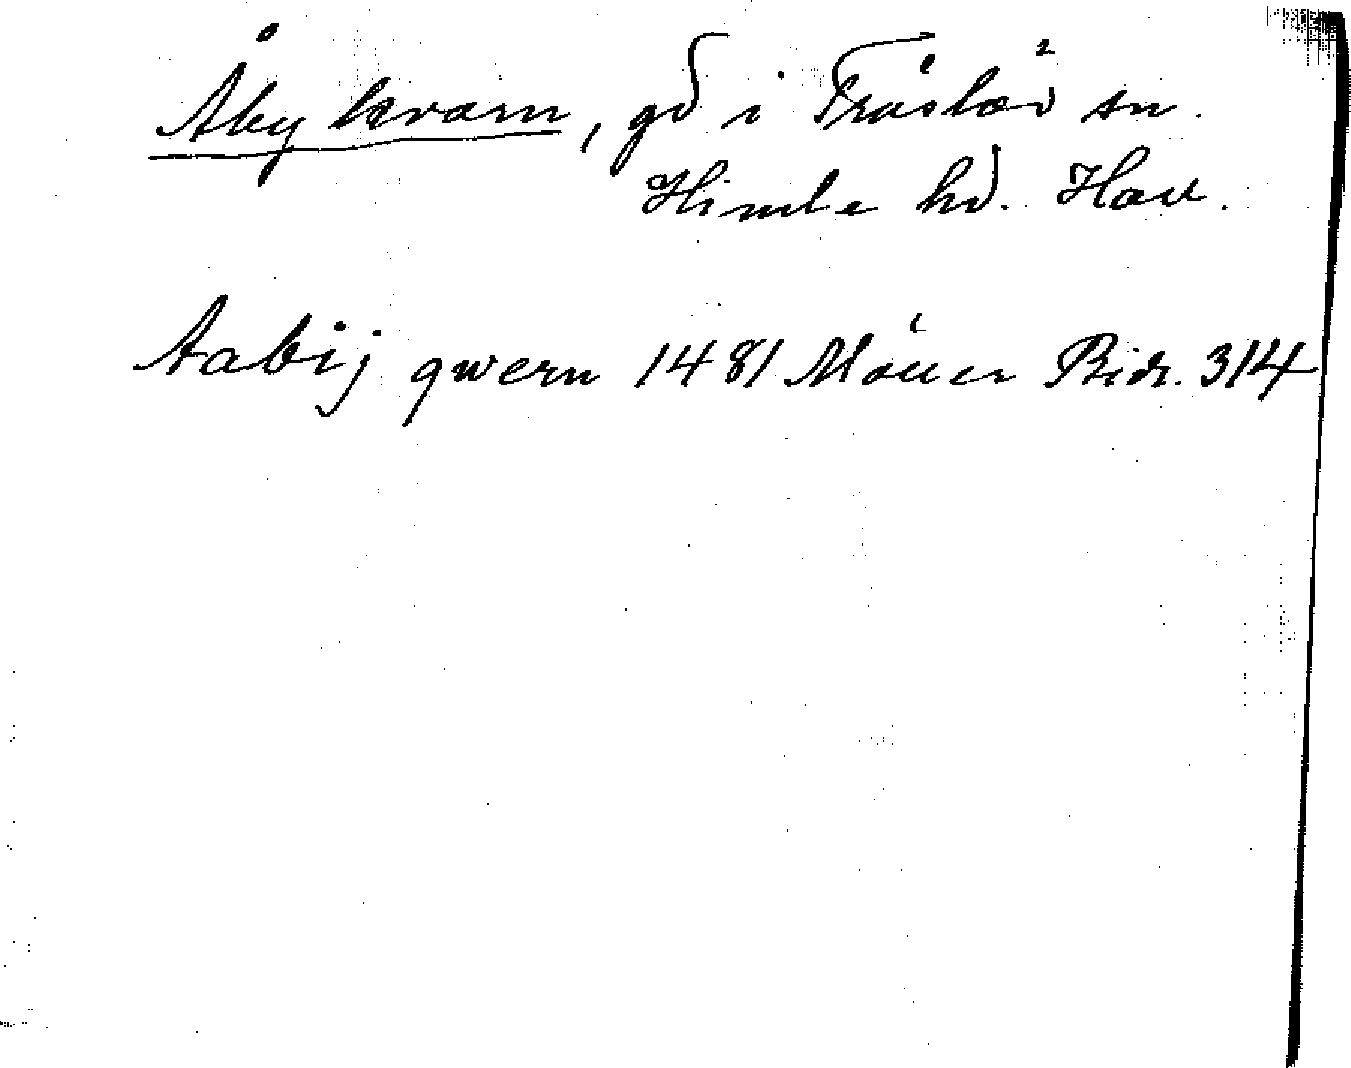 Åby kvarn, gd i Träslöv sn.
Himle hd. Hall.
Aabij qwern 1481 Möller Bidr. 314